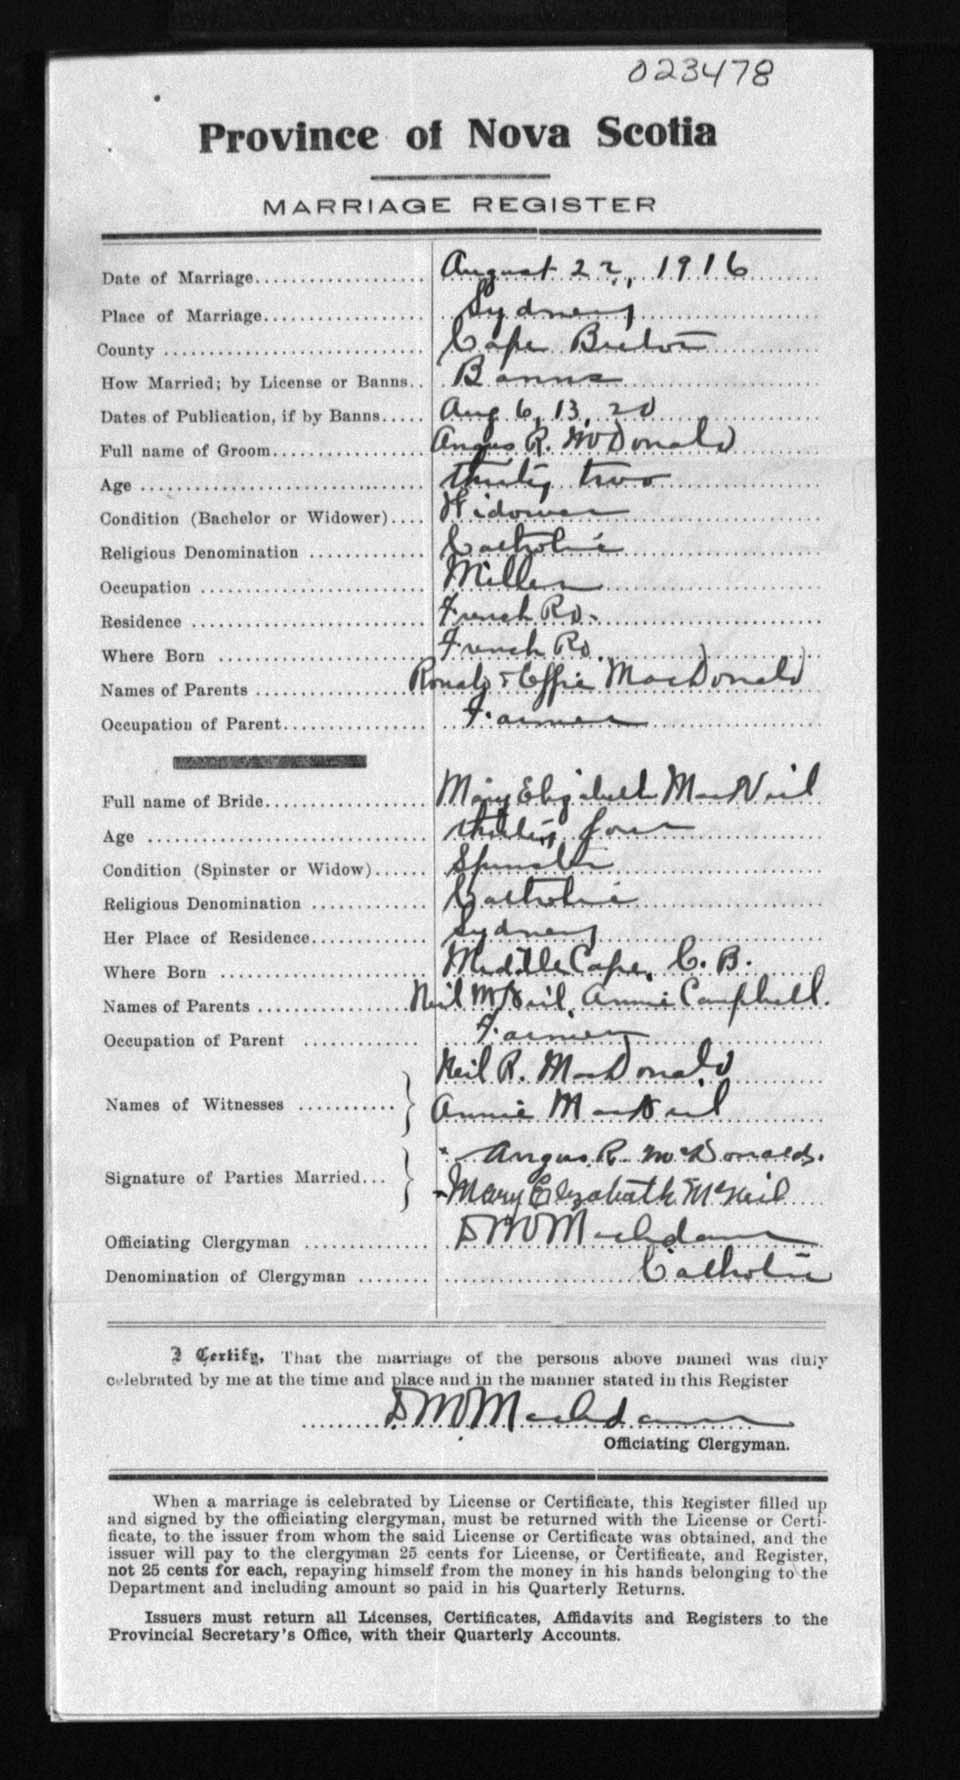 023478
Province of Nova Scotia
MARRIAGE REGISTER
Date of Marriage................... August 22, 1916
Place of Marriage.................. Sydney
County ............................. Cape Breton
How Married; by License or Banns.. Banns
Dates of Publication, if by Banns..... Aug 6, 13, 20
Full name of Groom................. Angus R. McDonald
Age ................................ thirty two
Condition (Bachelor or Widower).... Widower
Religious Denomination ............. Catholic
Occupation ......................... Miller
Residence .......................... French Rd.
Where Born ....................... French Rd.
Names of Parents .................. Ronald & Effie MacDonald
Occupation of Parent................ Farmer
Full name of Bride.................. Mary Elizabeth MacNeil
Age ............................... thirty four
Condition (Spinster or Widow)...... Spinster
Religious Denomination ............. Catholic
Her Place of Residence............. Sydney
Where Born ....................... Middle Cape, C. B.
Names of Parents .................. Neil McNeil, Annie Campbell.
Occupation of Parent ............. Farmer
Neil R. MacDonald
Names of Witnesses ...........
Annie MacNeil
Angus R. McDonald.
Signature of Parties Married...
Mary Elizabeth McNeil
Officiating Clergyman ............. D M MacAdam
Denomination of Clergyman ........ Catholic
I Certify, That the marriage of the persons above named was duly
celebrated by me at the time and place and in the manner stated in this Register
D M MacAdam
Officiating Clergyman.
When a marriage is celebrated by License or Certificate, this Register filled up
and signed by the officiating clergyman, must be returned with the License or Certi-
ficate, to the issuer from whom the said License or Certificate was obtained, and the
issuer will pay to the clergyman 25 cents for License, or Certificate, and Register,
not 25 cents for each, repaying himself from the money in his hands belonging to the
Department and including amount so paid in his Quarterly Returns.
Issuers must return all Licenses, Certificates, Affidavits and Registers to the
Provincial Secretary's Office, with their Quarterly Accounts.